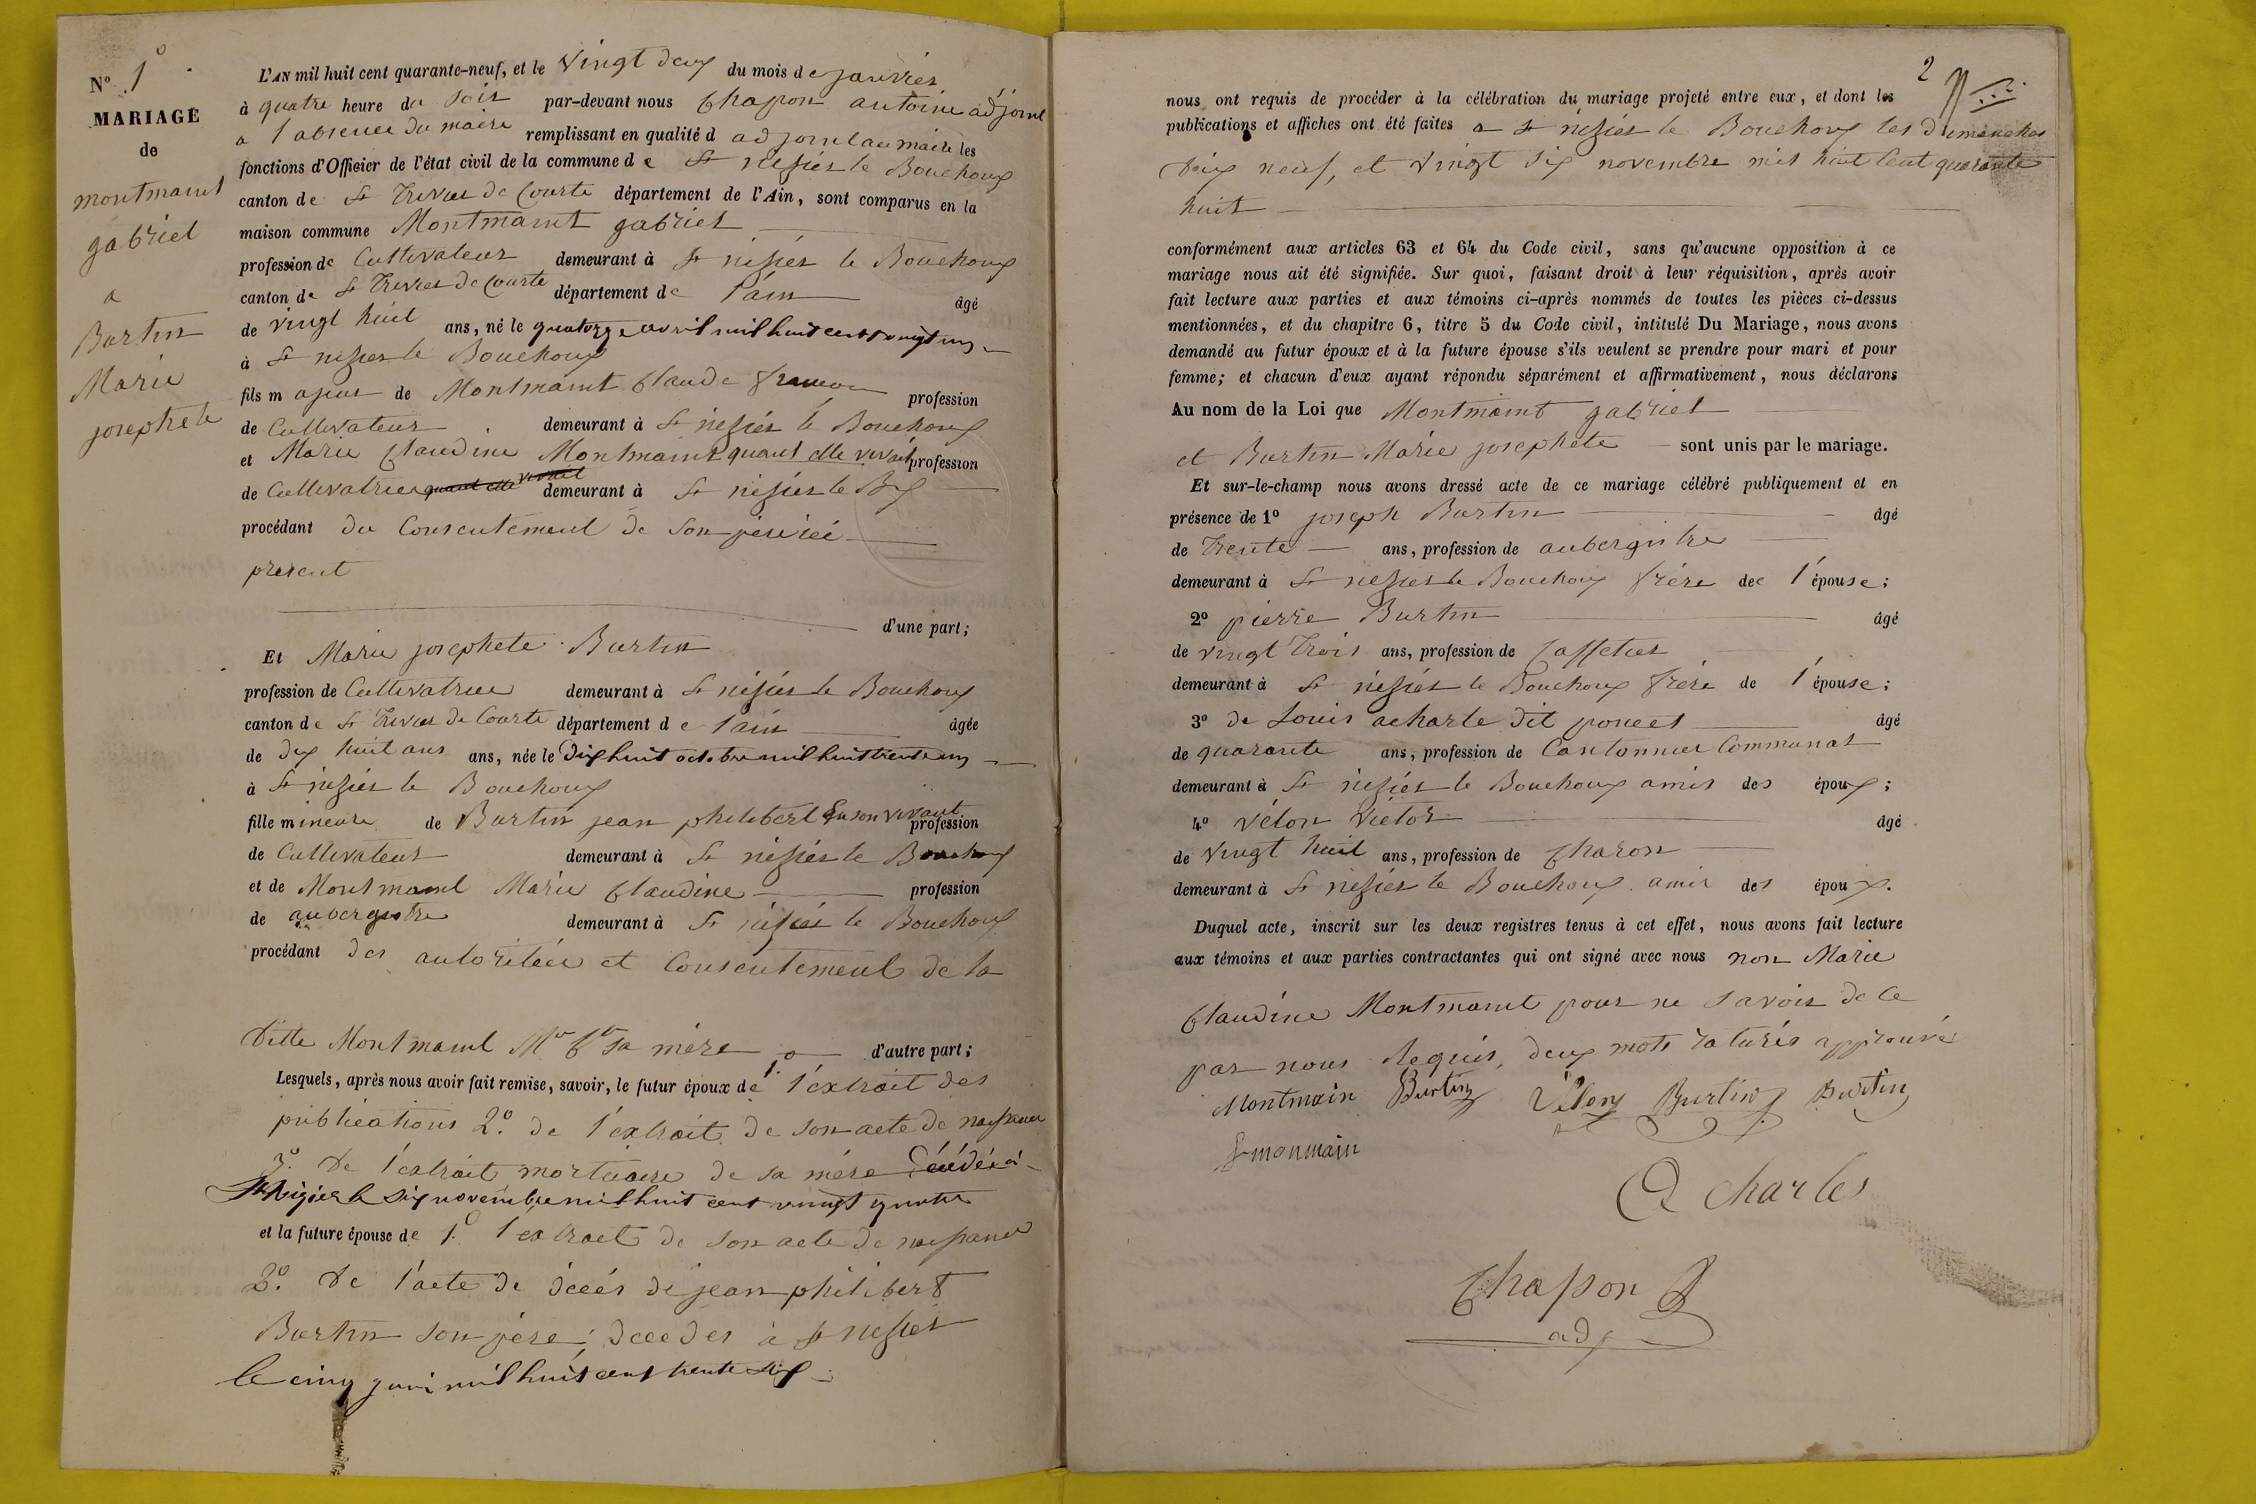 N.º 1º
MARIAGE
de
montmaint
gabriel
a
Burtin
Marie
josephete
L'AN mil huit cent quarante-neuf, et le vingt deux du mois de janvier
à quatre heure du soir par-devant nous Chapon antoine adjoint
a l'absence du maire remplissant en qualité d adjoint au maire les
fonctions d'Officier de l'état civil de la commune de St nizier le Bouchoux
canton de St Trivier de Courte département de l'Ain, sont comparus en la
maison commune Montmaint gabriel
profession de Cultivateur demeurant à St nizier le Bouchoux
canton de St Trivier de Courte département de l'ain âgé
de vingt huit ans, né le quatorze avril mil huit cent vingt un
à St nizier le Bouchoux
fils majeur de Montmaint Claude francois profession
de Cultivateur demeurant à St nizier le Bouchoux
et Marie Claudine Montmaint quant elle vivait profession
de Cultivatrice quant elle vivait demeurant à St nizier le Bx
procédant du Consentement de son père ici
present
d'une part;
Et Marie josephete Burtin
profession de Cultivatrice demeurant à St nizier le Bouchoux
canton de St Trivier de Courte département de l'ain âgée
de dix huit ans ans, née le Dix huit octobre mil huit trente un
à St nizier le Bouchoux
fille mineure de Burtin jean philibert En son vivant profession
de Cultivateur demeurant à St nizier le Bouchoux
et de Montmaint Marie Claudine profession
de aubergistre demeurant à St nizier le Bouchoux
procédant des autoritéer et Consentement de la
ditte Montmaint Mie Cne sa mère d'autre part;
Lesquels, après nous avoir fait remise, savoir, le futur époux de 1º l'extrait des
publications 2º. de l'extrait de son acte de naissance
3º. de l'extrait mortuaire de sa mère Décédée à
St Nizier le six novembre mil huit cent vingt quatre
et la future épouse de 1º l'extrait de son acte de naissance
2º. de l'acte de décés de jean philibert
Burtin son père, deceder à St nizier
le cinq juin mil huit cent trente six
2
nous ont requis de procéder à la célébration du mariage projeté entre eux, et dont les
publications et affiches ont été faites a St nizier le Bouchoux les dimanches
dix neuf, et vingt six novembre mil huit Cent quarante
huit
conformément aux articles 63 et 64 du Code civil, sans qu'aucune opposition à ce
mariage nous ait été signifiée. Sur quoi, faisant droit à leur réquisition, après avoir
fait lecture aux parties et aux témoins ci-après nommés de toutes les pièces ci-dessus
mentionnées, et du chapitre 6, titre 5 du Code civil, intitulé Du Mariage, nous avons
demandé au futur époux et à la future épouse s'ils veulent se prendre pour mari et pour
femme; et chacun d'eux ayant répondu séparément et affirmativement, nous déclarons
Au nom de la Loi que Montmaint gabriel
et Burtin Marie josephete sont unis par le mariage.
Et sur-le-champ nous avons dressé acte de ce mariage célébré publiquement et en
présence de 1º joseph Burtin âgé
de trente ans, profession de aubergistre
demeurant à St nizier le Bouchoux frére dee l'épouse;
2º pierre Burtin âgé
de vingt trois ans, profession de Caffetier
demeurant à St nizier le Bouchoux frére de l'épouse;
3º de Louis acharle dit poncet âgé
de quarante ans, profession de Cantonnier Communal
demeurant à St nizier le Bouchoux amis des époux;
4º vélon victor âgé
de vingt huit ans, profession de Charon
demeurant à St nizier le Bouchoux amis des époux.
Duquel acte, inscrit sur les deux registres tenus à cet effet, nous avons fait lecture
aux témoins et aux parties contractantes qui ont signé avec nous non Marie
Claudine Montmaint pour ne savoir de ce
par nous Requis, deux mots raturés approuvés
Montmain Burtin Vélon Burtin Burtin
fmonmain
A charles
Chapon
adj